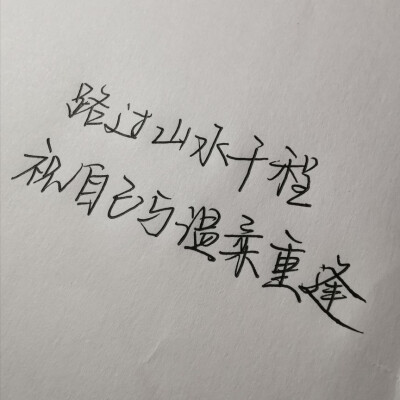 路过山水千程
祝自己与温柔重逢